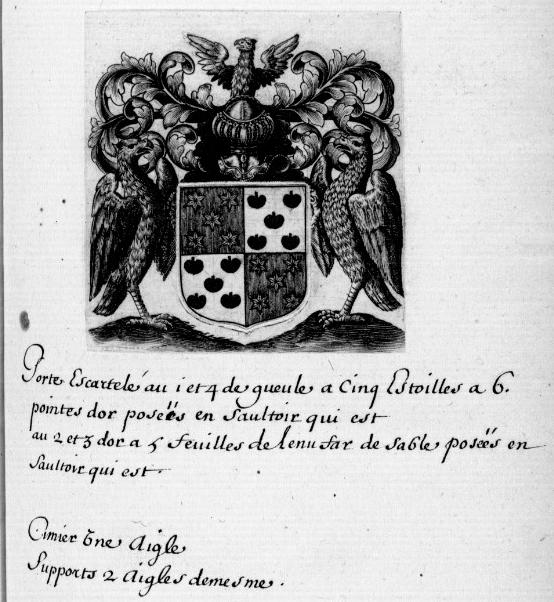 Porte Escartelé au 1 et 4 de gueule a Cinq Estoilles a 6.
pointes dor poseës en Saultoir qui est
au 2 et 3 dor a 5 feuilles de lenufar de sable poseës en
Saultoir qui est.
Cimier Une Aigle
Supports 2 Aigles demesme.